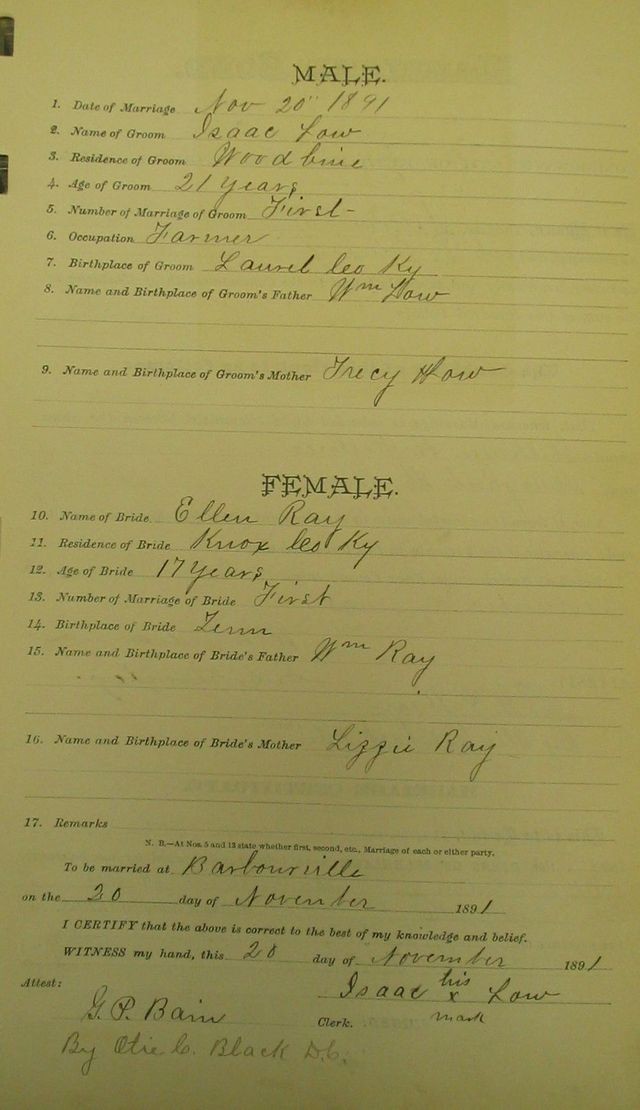 MALE.
1. Date of Marriage Nov 20" 1891
2. Name of Groom Isaac Low
3. Residence of Groom Woodbine
4. Age of Groom 21 years
5. Number of Marriage of Groom First-
6. Occupation Farmer
7. Birthplace of Groom Laurel Co Ky
8. Name and Birthplace of Groom's Father Wm Low
9. Name and Birthplace of Groom's Mother Trecy Low
FEMALE.
10. Name of Bride. Ellen Ray
11. Residence of Bride Knox Co Ky
12. Age of Bride 17 years
13. Number of Marriage of Bride First
14. Birthplace of Bride Tenn
15. Name and Birthplace of Bride's Father Wm Ray
16. Name and Birthplace of Bride's Mother Lizzie Ray
17. Remarks
N. B.—At Nos. 5 and 13 state whether first, second, etc., Marriage of each or either party.
To be married at Barbourville
on the 20 day of November 1891
I CERTIFY that the above is correct to the best of my knowledge and belief.
WITNESS my hand, this 20 day of November 1891
Isaac his x mark Low
Attest:
G. P. Bain Clerk.
By Otie C. Black D.C.